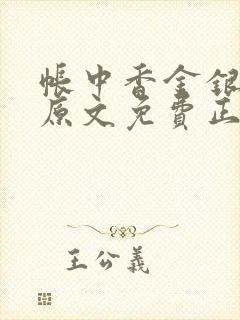 帳中香金銀
原文免費正
王公義